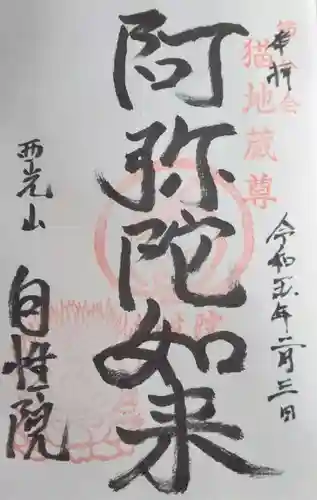 奉拝
猫地蔵尊
令和五年二月三日
阿弥陀如来
西光山
自性院